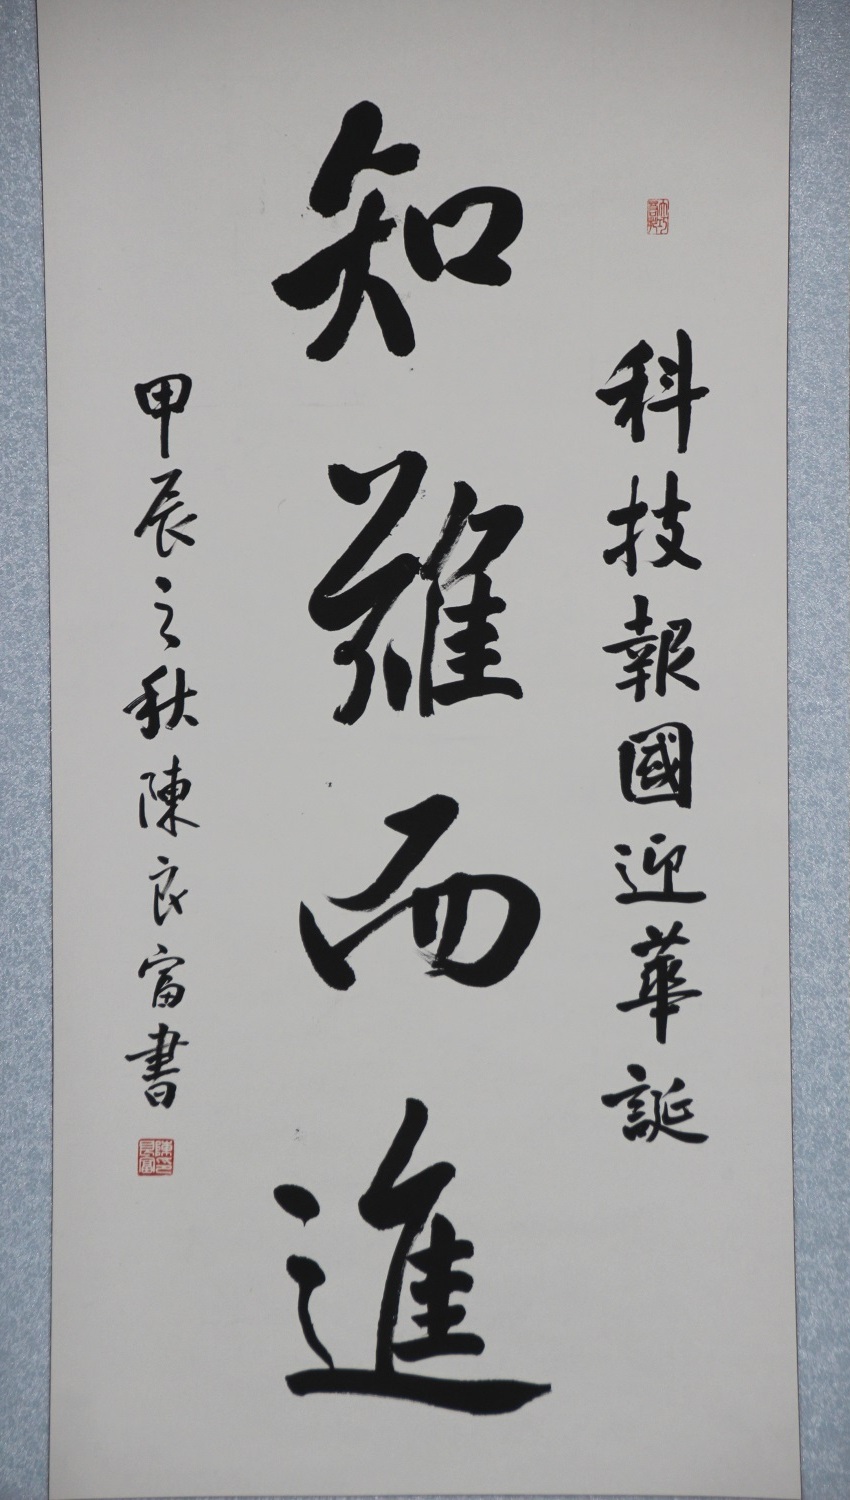 科技報國迎華誕
知難而進
甲辰之秋陳良富書
陳良富印